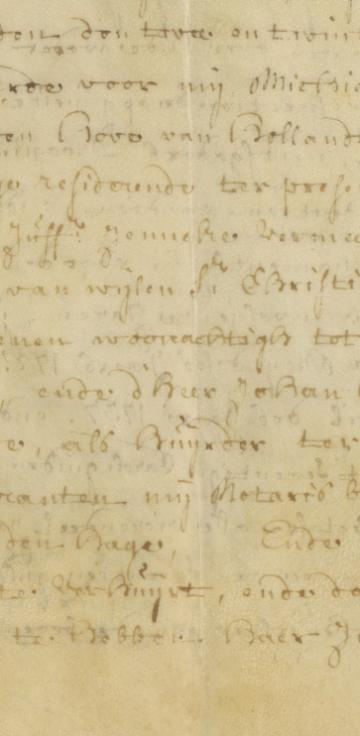 den den twee en twint
rde voor mij Michie
en Hove van Hollande
residerende ter prese
Juffr. Jenneke Verme
van wijlen Sr. Christi
woonachtigh tot
ende d'heer Johan
e, als huijrder ter
anten mij Notaris
den Hage, Ende
te verhuijrt, ende
te hebben haer